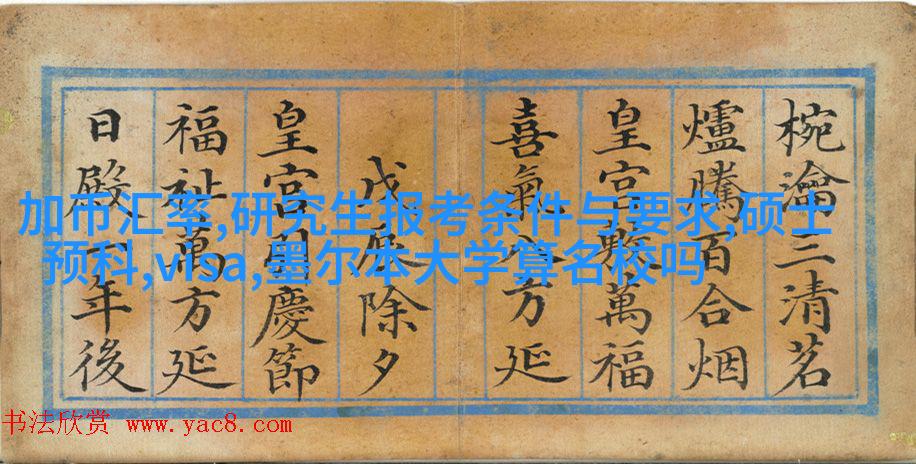 椀瀹三清茗
爐騰百合烟
皇宮萬福
喜氣方延
戊辰除夕
皇宮慶節
福祉萬方延
日殿年後
加币汇率,研究生报考条件与要求,硕士
预科,visa,墨尔本大学算名校吗
书法欣赏 www.yac8.com